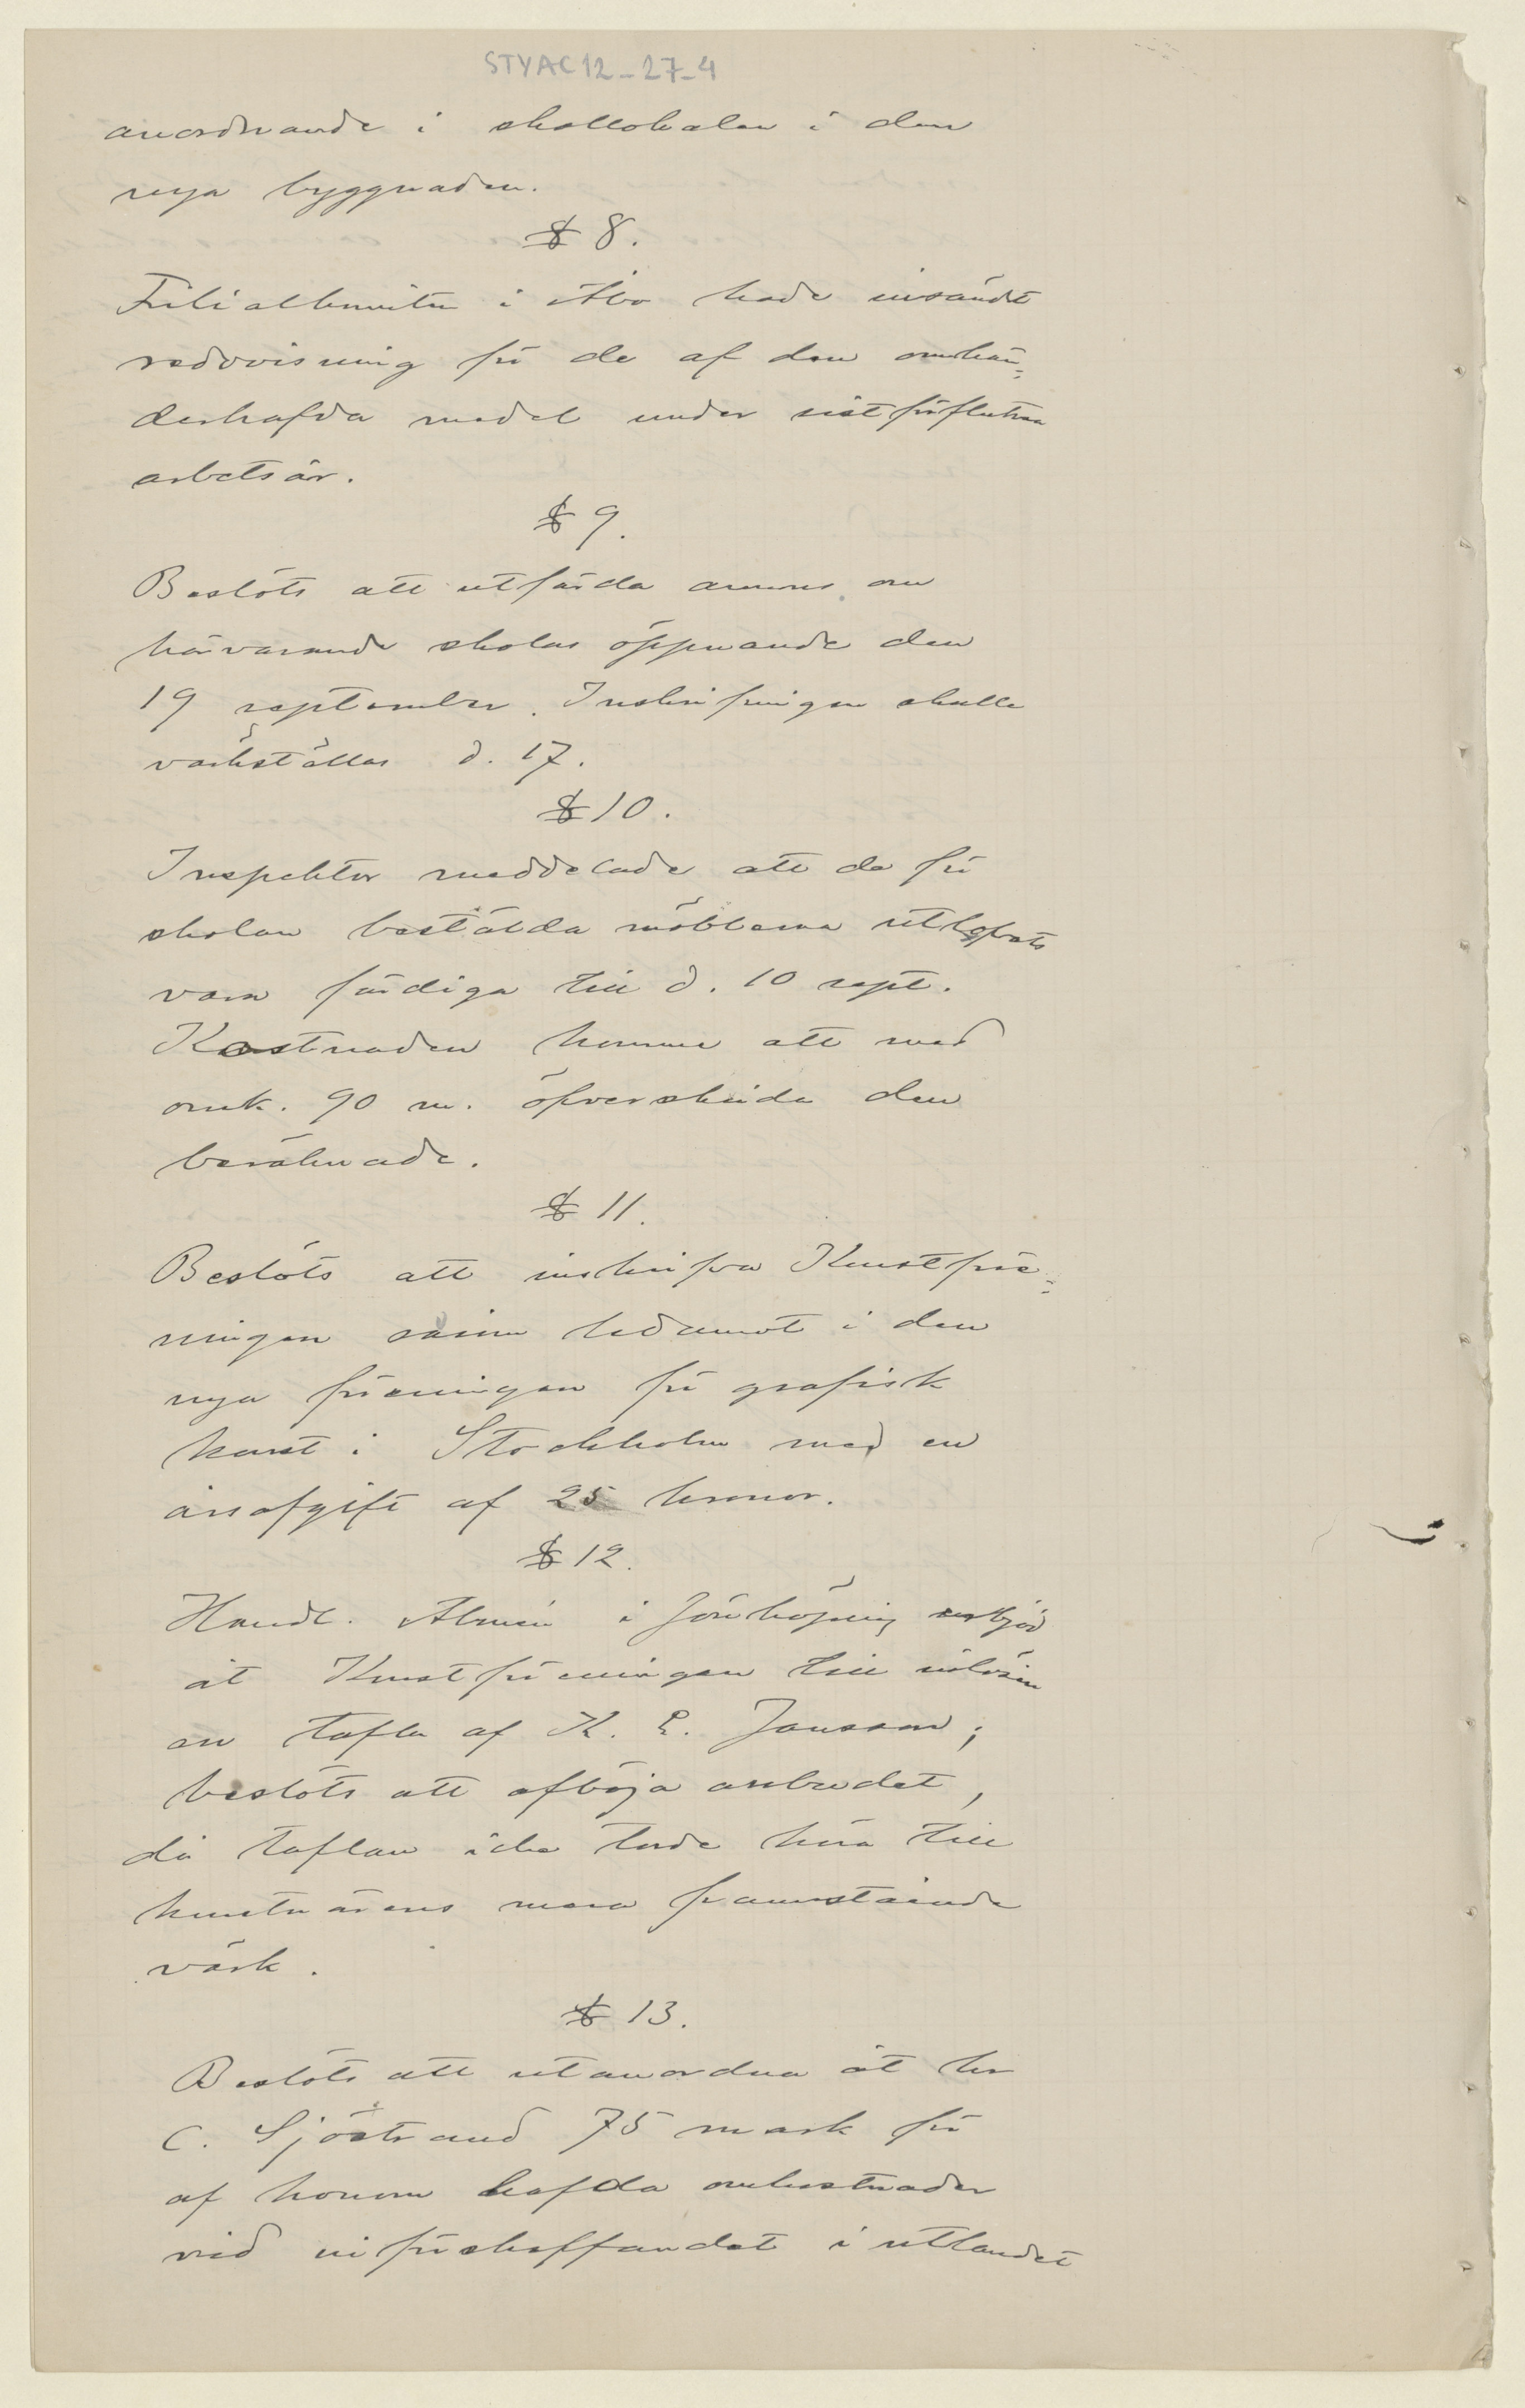 STYAC12-27-4
anordnande i skollokalen i den
nya byggnaden.
§ 8.
Filialkomitén i Åbo hade insändt
redovisning för de af den omhän-
derhafda medel under sist förflutna
arbetsår.
§ 9.
Beslöts att utfärda annons om
härvarande skolas öppnande den
19 september. Inskrifningen skulle
värkställas d. 17.
§ 10.
Inspektor meddelade att de för
skolan bestälda möblerna utlofvats
vara färdiga till d. 10 sept.
Kostnaden komme att med
omk. 90 m. öfverskrida den
beräknade.
§ 11.
Beslöts att inskrifva Konstföre-
ningen såsom ledamot i den
nya föreningen för grafisk
konst i Stockholm med en
årsafgift af 25 kronor.
§ 12.
Handl. Almén i Jönköping erbjöd
åt Konstföreningen till inlösen
en tafla af K. E. Jansson;
beslöts att afböja anbudet,
då taflan icke torde höra till
konstnärens mera framstående
värk.
§ 13.
Beslöts att utanordna åt hr
C. Sjöstrand 75 mark för
af honom hafda omkostnader
vid införskaffandet i utlandet